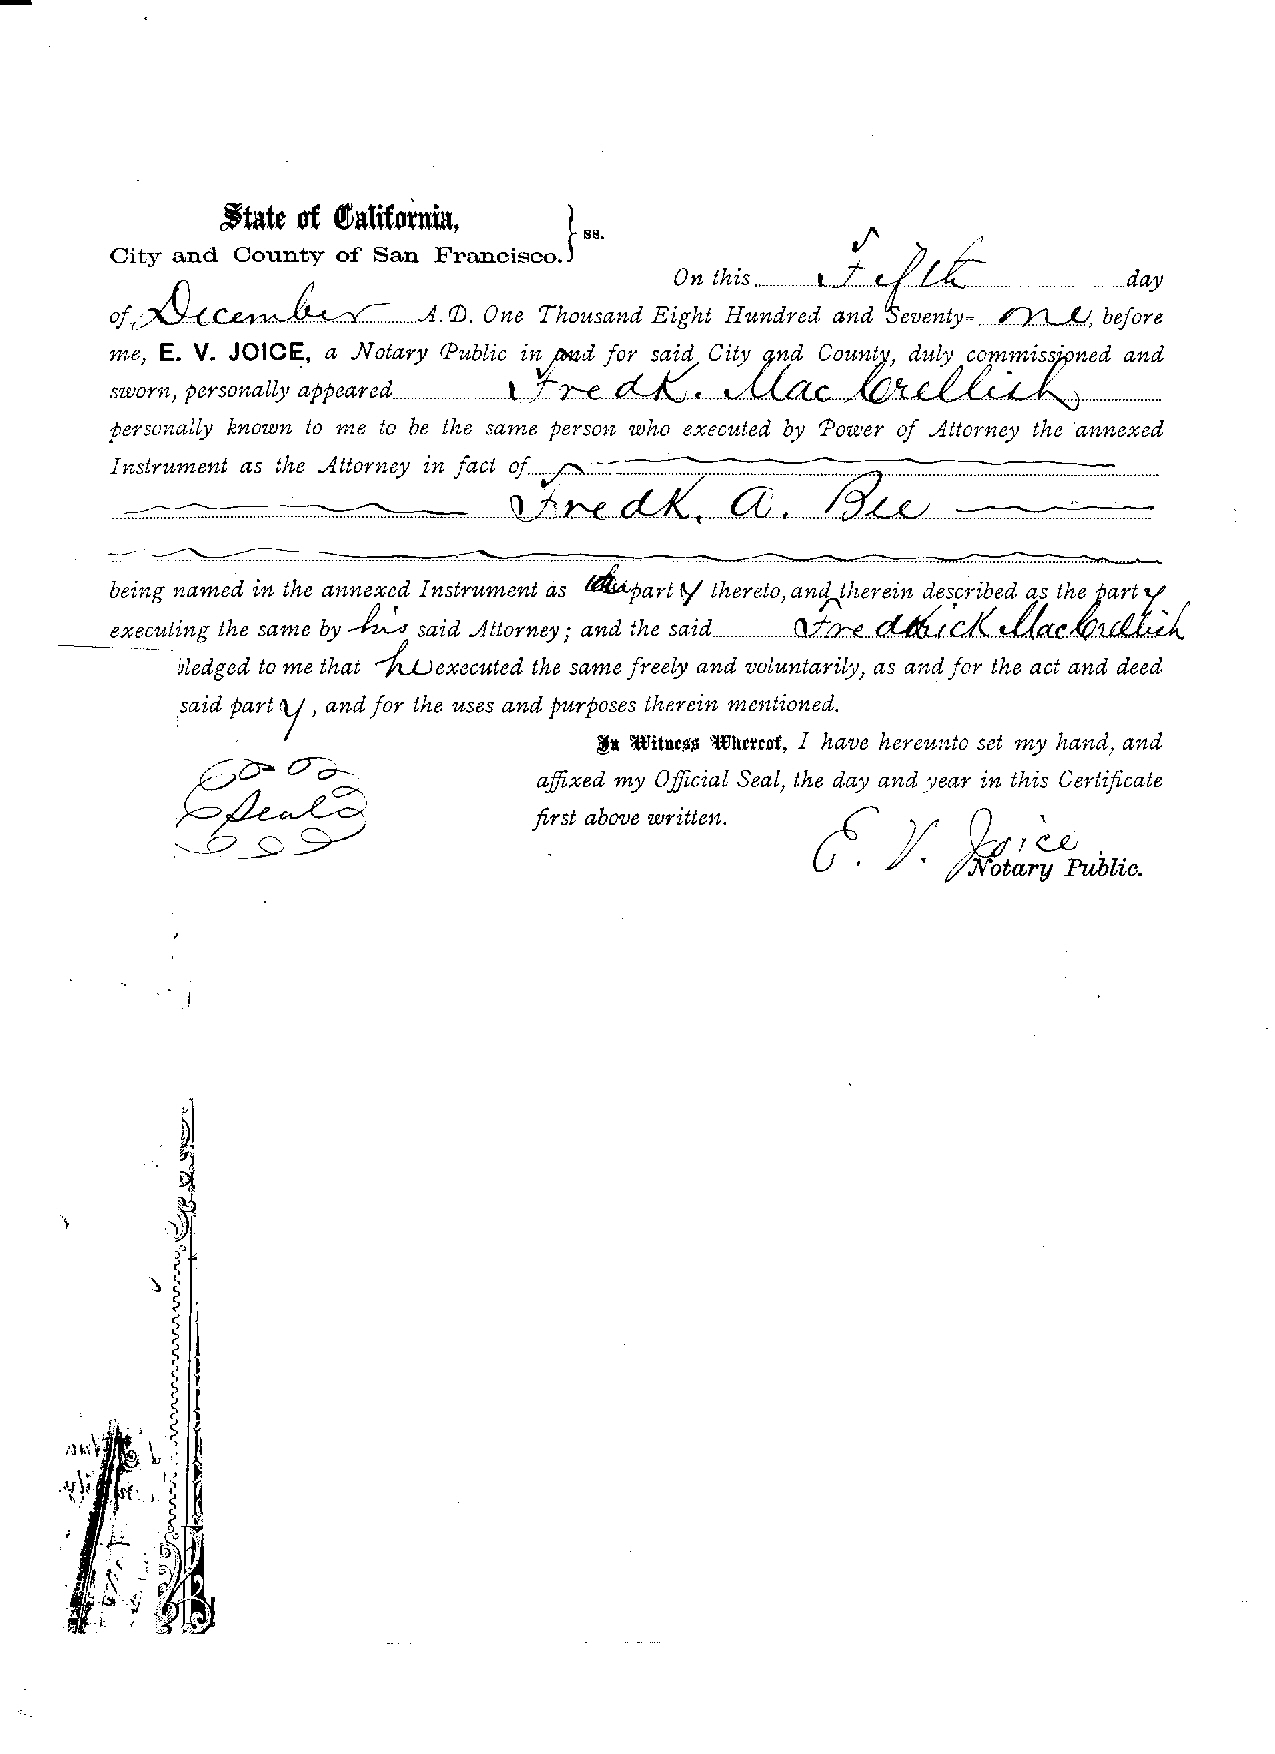 State of California,
City and County of San Francisco. } ss.
On this Fifth day
of December A. D. One Thousand Eight Hundred and Seventy-one, before
me, E. V. JOICE, a Notary Public in and for said City and County, duly commissioned and
sworn, personally appeared Fredk. MacCrellish
personally known to me to be the same person who executed by Power of Attorney the annexed
Instrument as the Attorney in fact of
Fredk. A. Bee
being named in the annexed Instrument as party thereto, and therein described as the party
executing the same by his said Attorney; and the said Fredkrick MacCrellish
ledged to me that he executed the same freely and voluntarily, as and for the act and deed
said party, and for the uses and purposes therein mentioned.
In Witness Whereof, I have hereunto set my hand, and
affixed my Official Seal, the day and year in this Certificate
first above written.
Seal
E. V. Joice
Notary Public.